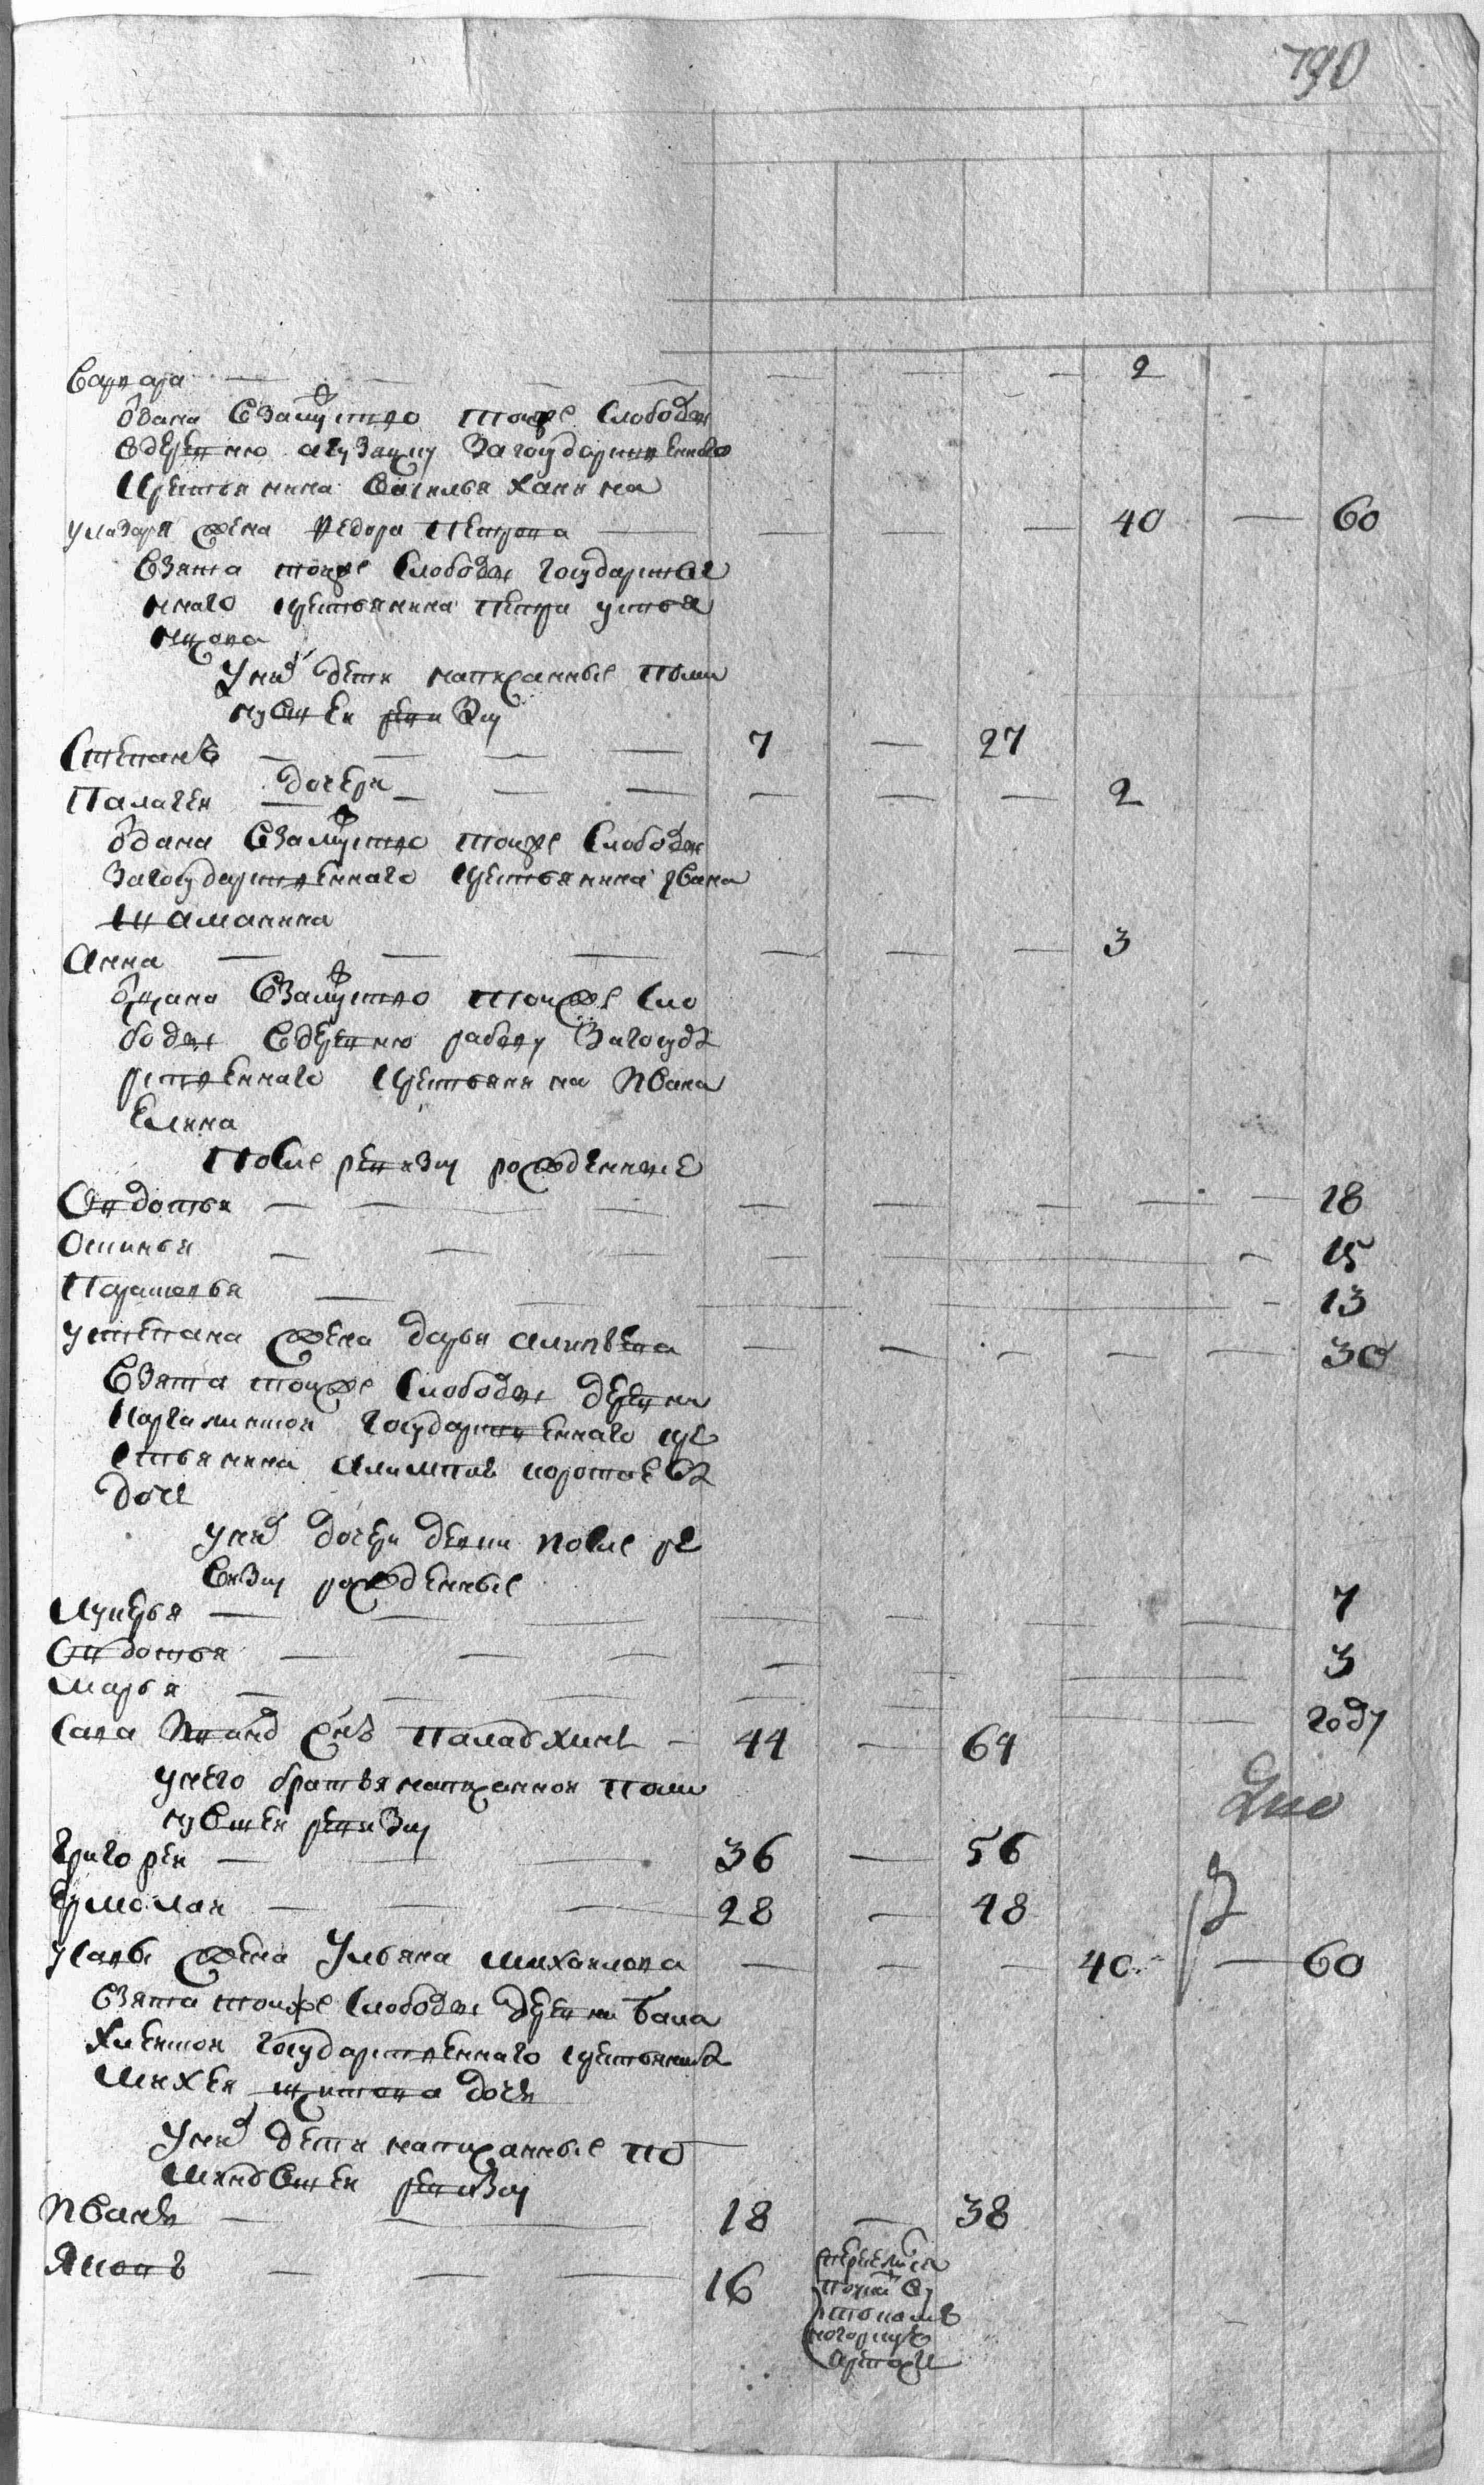 790
Варвара — — — — — — — 2
отдана взамужство тоежъ слободы
вдеревню агузацку загосударственного
крестьянина василья ханина
у лазаря жена федора петрова — — — — 40 — 60
взята тоеже слободы государстве
ннаго крестьянина петра устья
нцова
у нихъ дети написанные поми
нувшеи ревизии
Степанъ — — — — 7 — 27
дочери
Палагеи — — — — — — — 2
отдана взамужство тоеже слободы
загосударственнаго крестьянина ивана
шаманина
Анна — — — — — — 3
отдана взамужство тоеже сло
боды вдеревню рабову загосуда
рственнаго крестьянина ивана
елина
после ревизии рожденные
Овдотья — — — — — — — — 18
Офимья — — — — — — 15
Парасковья — — — — — 13
устепана жена дарья алипьева — — — — — 30
взята тоеже слободы деревни
государственнаго кре
стьянина коротаева
дочь
у нихъ дочери после ре
визии рожденные
лукерья — — — — — — — 7
Овдотья — — — — — — 3
марья — — — — — — году
Сава сынъ Палабжинъ — 44 — 64
унего братья написанной поми
нувшеи ревизии
григореи — — — 36 — 56
ермолаи — — — 28 — 48
у савы жена ульяна михаилова — — — 40 — 60
взята тоеже слободы деревни бала
хлеиской государственнаго крестьянина
михея дочь
у нихъ дети написанные по
минувшеи ревизии
иванъ — — 18 — 38
Яковъ — — — 16